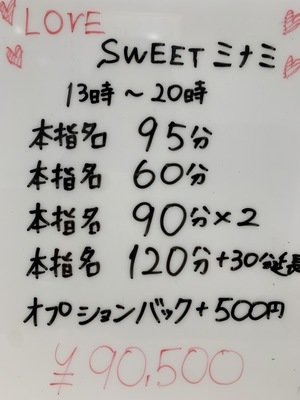 LOVE
SWEETミナミ
13時～20時
本指名 95分
本指名 60分
本指名 90分×2
本指名 120分+30分延長
オプションバック+500円
¥90,500